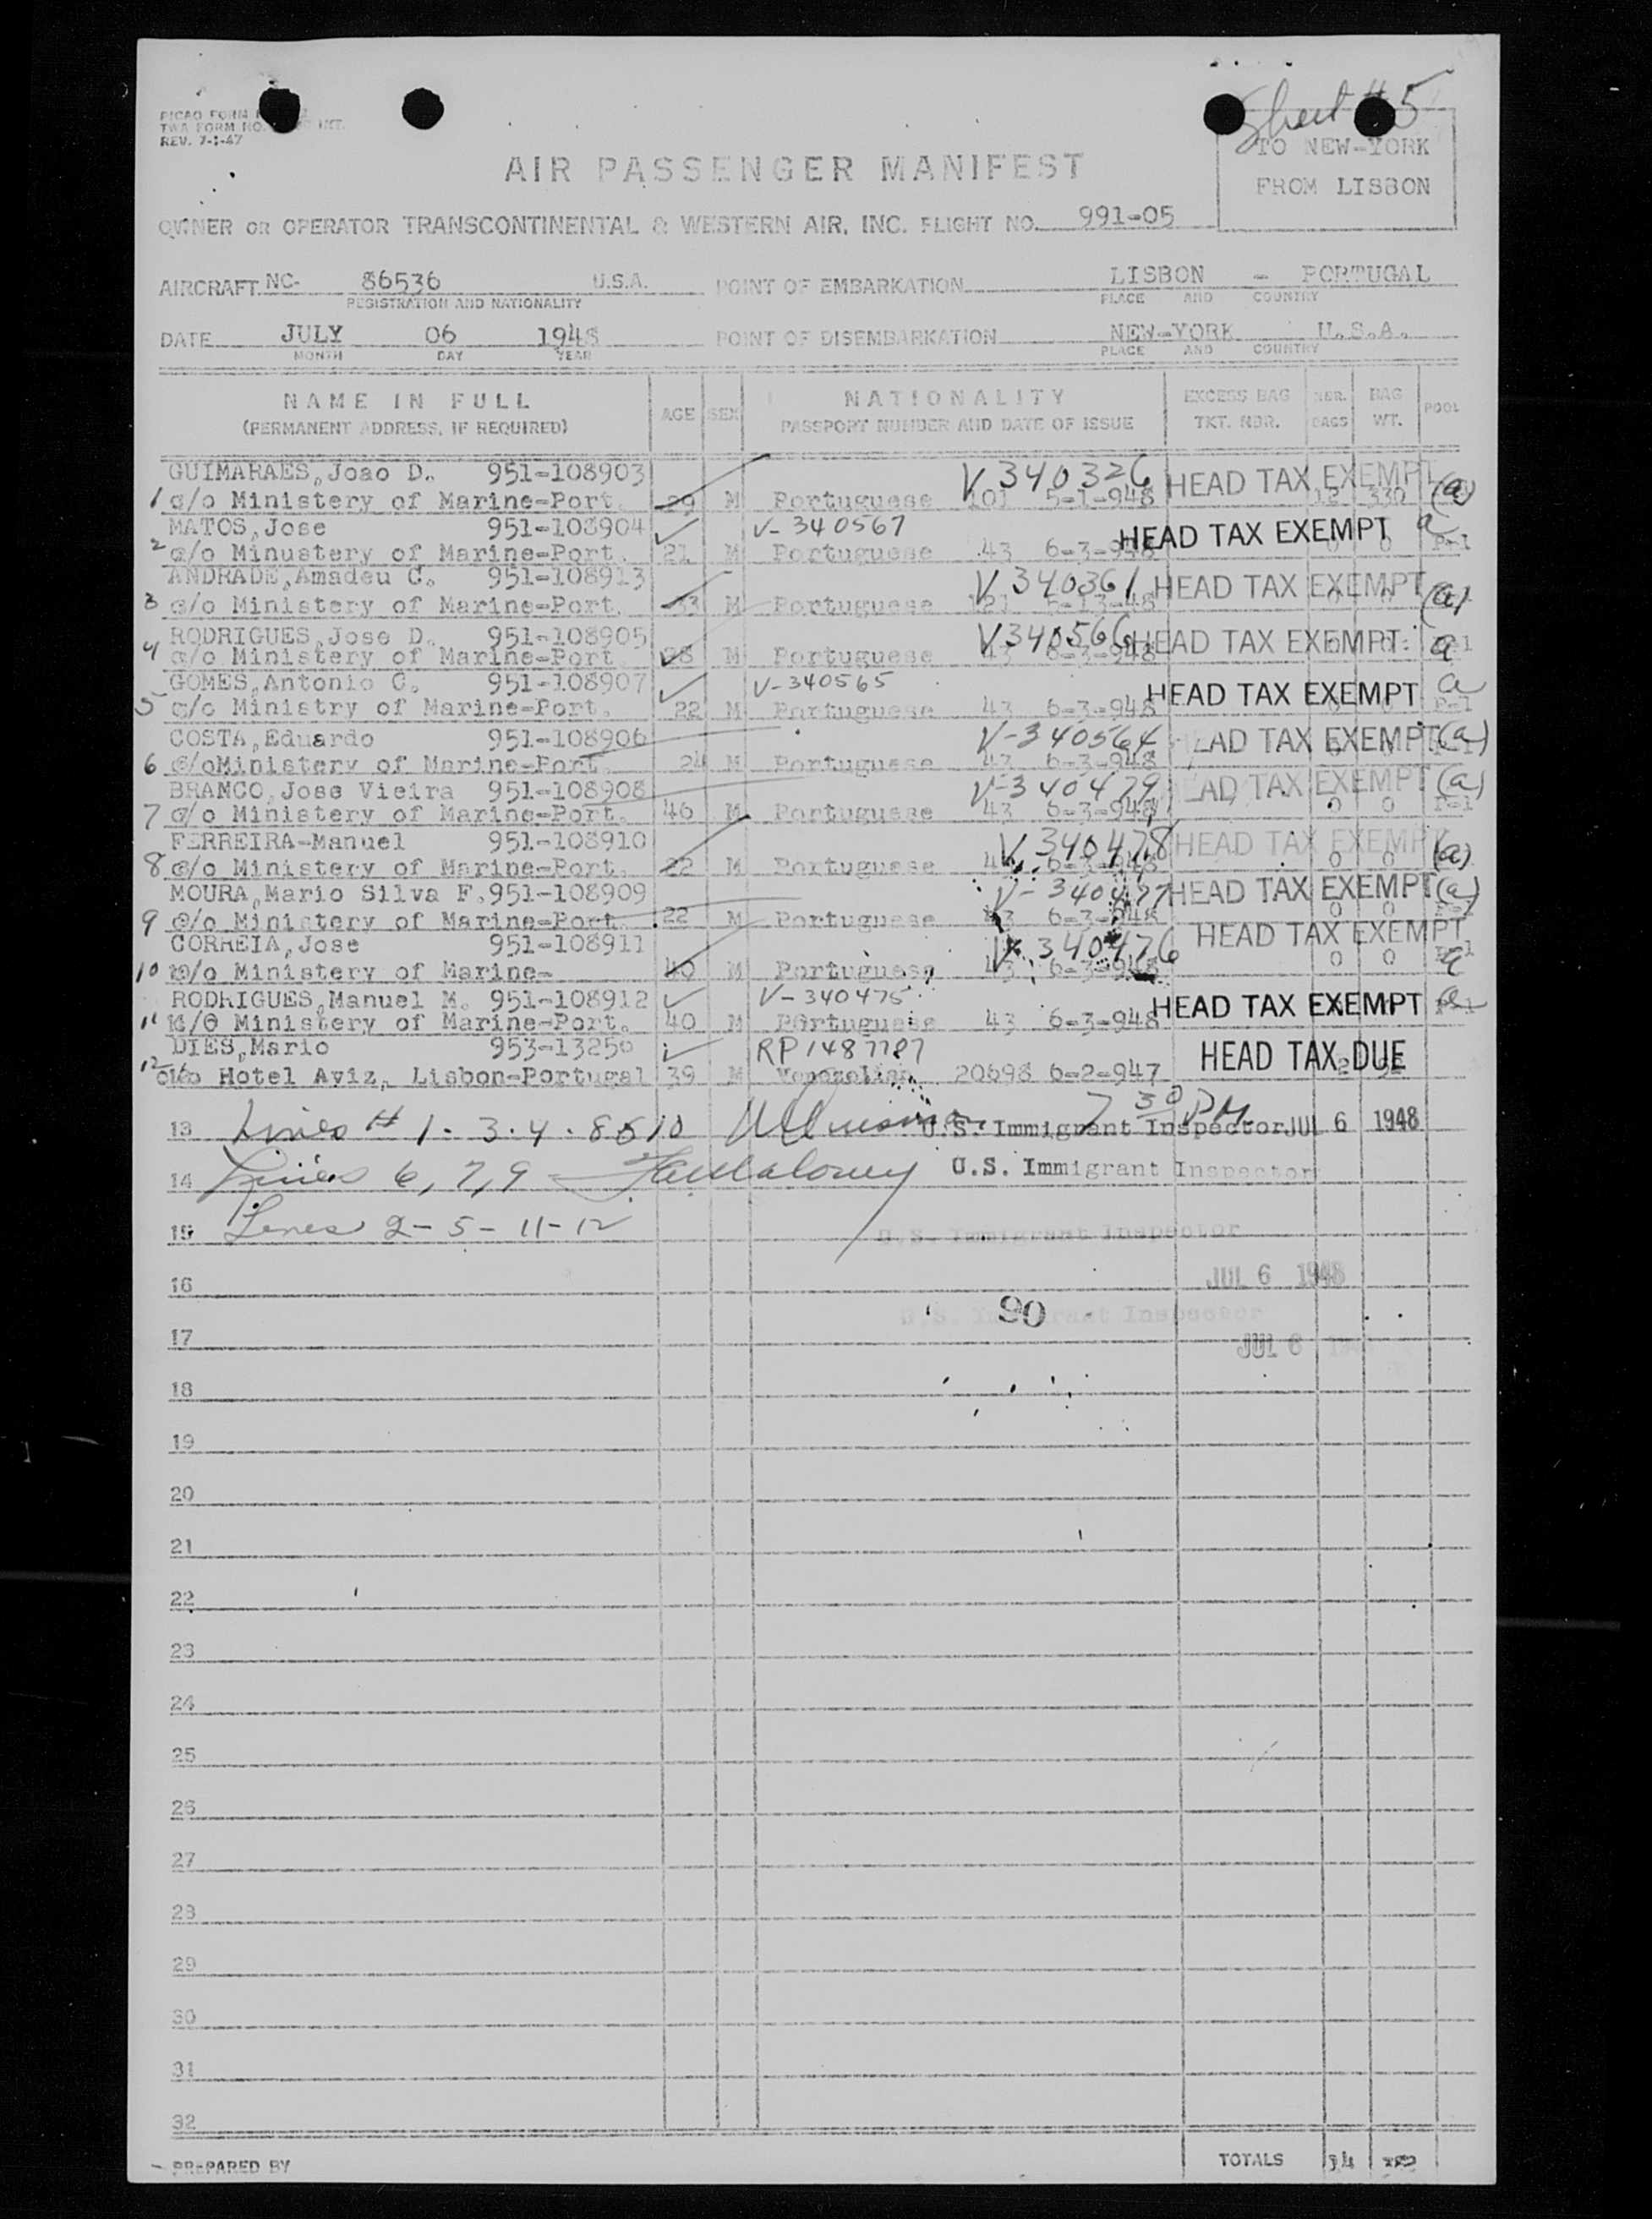 Sheet # 5
PICAO FORM
TWA FORM NO. INT.
REV. 7-1-47
TO NEW-YORK
FROM LISBON
AIR PASSENGER MANIFEST
OWNER OR OPERATOR TRANSCONTINENTAL & WESTERN AIR, INC. FLIGHT NO. 991-05
AIRCRAFT NC- 86536 U.S.A. POINT OF EMBARKATION LISBON - PORTUGAL
REGISTRATION AND NATIONALITY PLACE AND COUNTRY
DATE JULY 06 1948 POINT OF DISEMBARKATION NEW-YORK U.S.A.
MONTH DAY YEAR PLACE AND COUNTRY
NAME IN FULL AGE SEX NATIONALITY EXCESS BAG NBR. BAG POOL
(PERMANENT ADDRESS, IF REQUIRED) PASSPORT NUMBER AND DATE OF ISSUE TKT. NBR. BAGS WT.
GUIMARAES, Joao D. 951-108903 V 340326 HEAD TAX EXEMPT (a)
1 c/o Ministery of Marine-Port. 29 M Portuguese 101 5-1-948 12 330
MATOS, Jose 951-108904 V-340567 HEAD TAX EXEMPT a
2 c/o Minustery of Marine-Port. 21 M Portuguese 43 6-3-948 0 0 P-1
ANDRADE, Amadeu C. 951-108913 V 340361 HEAD TAX EXEMPT (a)
3 c/o Ministery of Marine-Port. 33 M Portuguese 121 5-13-48
RODRIGUES, Jose D. 951-108905 V340566 HEAD TAX EXEMPT a
4 c/o Ministery of Marine-Port 28 M Portuguese 43 6-3-948
GOMES, Antonio C. 951-108907 V-340565 HEAD TAX EXEMPT a
5 c/o Ministry of Marine-Port. 22 M Portuguese 43 6-3-948 P-1
COSTA, Eduardo 951-108906 V-340564 HEAD TAX EXEMPT (a)
6 c/oMinistery of Marine-Port. 24 M Portuguese 43 6-3-948
BRANCO, Jose Vieira 951-108908 V-340479 HEAD TAX EXEMPT (a)
7 c/o Ministery of Marine-Port. 46 M Portuguese 43 6-3-948 0 0 P-1
FERREIRA-Manuel 951-108910 V 340478 HEAD TAX EXEMPT (a)
8 c/o Ministery of Marine-Port. 22 M Portuguese 43 6-3-948 0 0
MOURA, Mario Silva F. 951-108909 V-340477 HEAD TAX EXEMPT (a)
9 c/o Ministery of Marine-Port. 22 M Portuguese 43 6-3-948 0 0 P-1
CORREIA, Jose 951-108911 V-340476 HEAD TAX EXEMPT
10 c/o Ministery of Marine- 40 M Portuguese 43 6-3-948 0 0 P-1 a
RODRIGUES, Manuel M. 951-108912 V-340475 HEAD TAX EXEMPT a
11 C/O Ministery of Marine-Port. 40 M POrtuguese 43 6-3-948 P-1
DIES, Mario 953-13250 RP1487787 HEAD TAX DUE
12 Hotel Aviz, Lisbon-Portugal 39 M Venezolian 20698 6-2-947 2
13 Lines # 1. 3. 4. 8 & 10 7 30 PM U.S. Immigrant Inspector JUL 6 1948
14 Lines 6, 7, 9 U.S. Immigrant Inspector
15 Lines 2-5-11-12 U.S. Immigrant Inspector
16 JUL 6 1948
90 U.S. Immigrant Inspector
17 JUL 6 1948
18
19
20
21
22
23
24
25
26
27
28
29
30
31
32
PREPARED BY TOTALS 14